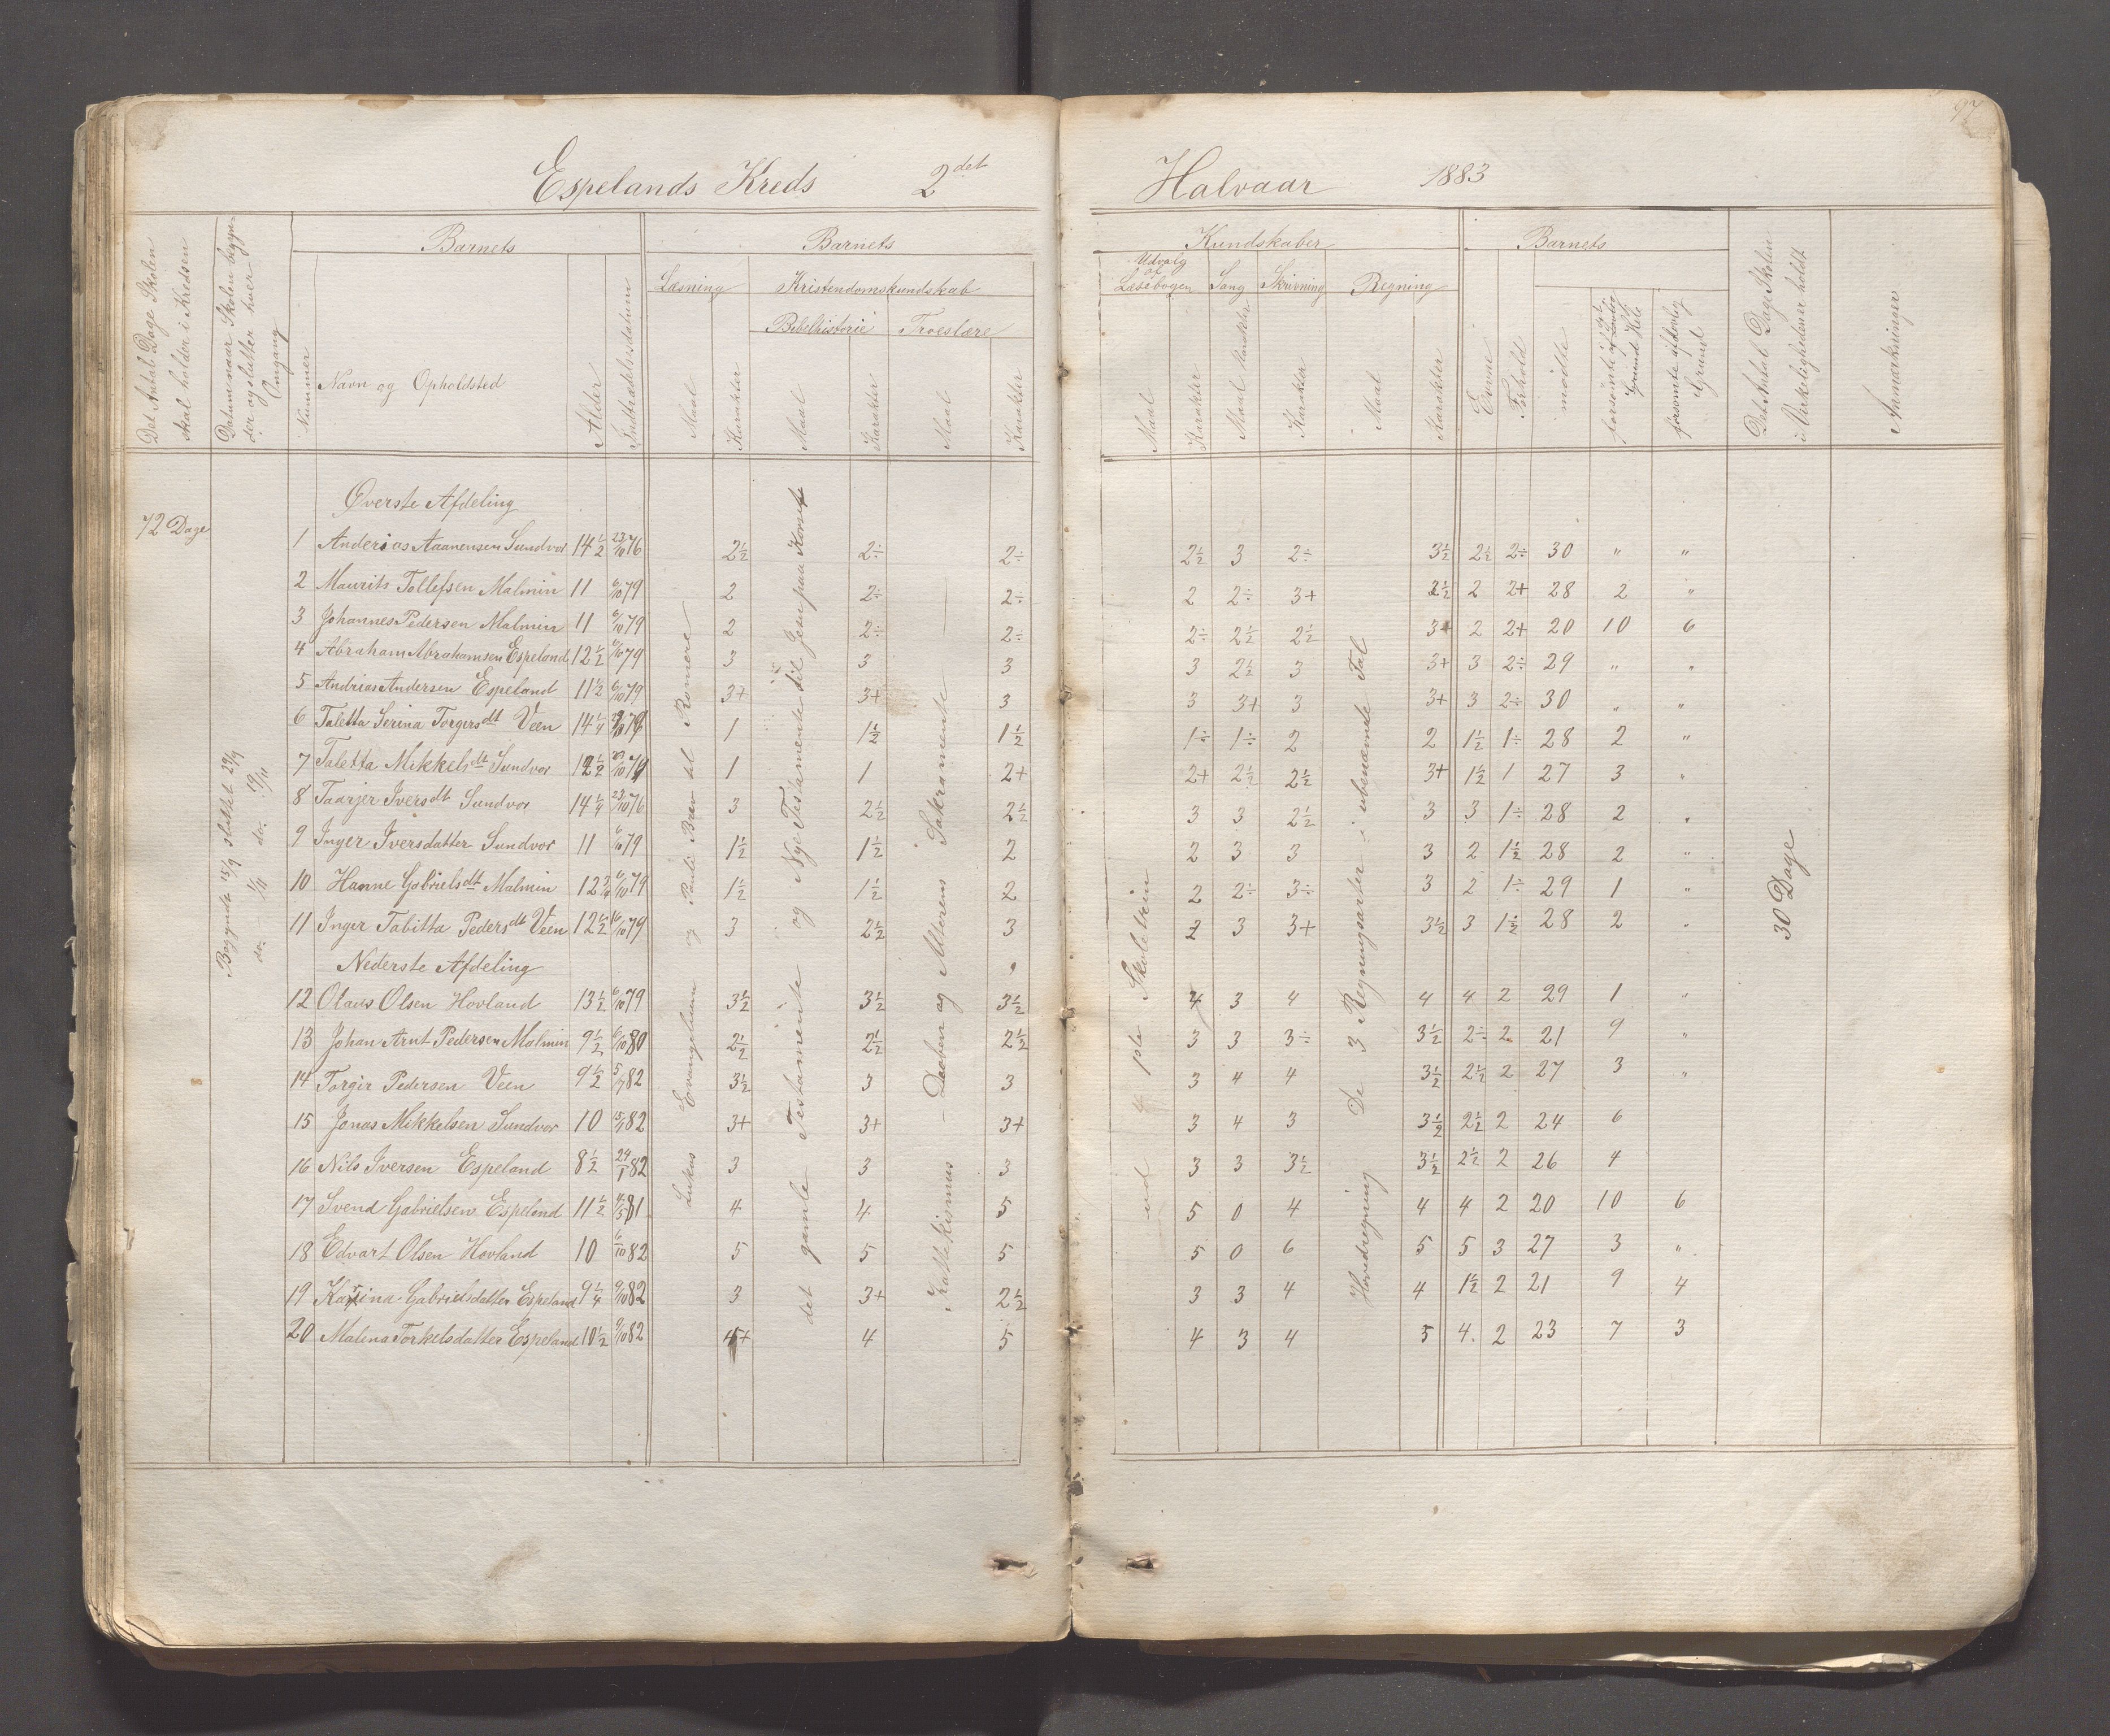 97
Espelands Kreds 2det Halvaar 1883
Det Antal Dage Skolen skal holdes i Kredsen
Datum naar Skolen begynder og slutter hver Omgang
Barnets
Nummer
Navn og Opholdsted
Alder
Indtrædelsesdatum
Barnets
Læsning
Maal
Karakter
Kristendomskundskab
Bibelhistorie
Maal
Karakter
Troeslære
Maal
Karakter
Kundskaber
Udvalg af Læsebogen
Maal
Karakter
Sang
Maal Karakter
Skrivning
Karakter
Regning
Maal
Karakter
Barnets
Evne
Forhold
mødte
forsømte af
forsømte af lovlig Grund
Det Antal Dage Skolen i Virkeligheden er holdt
Anmærkninger
72 Dage
Begyndte 15/9 sluttet 29/9
do. — 1/11 do. 19/11
Lukas Evangelium og Pauli Brev til Romere
det gamle Testamente og Nye Testamente til Jesu paa Korset
Katekismus — Daaben og Alterens Sakramente
ud 4 pte Skoletrin
Hovedregning De 3 Regningsarter i ubenævnte Tal
30 Dage
Øverste Afdeling
1 Anderias Aanensen Sundvor 14 1/2 23/10 76 2 1/2 2÷ 2÷ 2 1/2 3 2÷ 3 1/2 2 1/2 2÷ 30 " "
2 Maurits Tollefsen Malmin 11 6/10 79 2 2÷ 2÷ 2 2÷ 3+ 2 1/2 2 2+ 28 2 "
3 Johannes Pedersen Malmin 11 6/10 79 2 2÷ 2÷ 2÷ 2 1/2 2 1/2 3+ 2 2+ 20 10 6
4 Abraham Abrahamsen Espeland 12 1/2 6/10 79 3 3 3 3 2 1/2 3 3+ 3 2÷ 29 " "
5 Andrias Andersen Espeland 11 1/2 6/10 79 3+ 3+ 3 3 3+ 3 3+ 3 2÷ 30 " "
6 Taletta Serina Torgersdt Veen 14 1/4 79 1 1 1/2 1 1/2 1÷ 1÷ 2 2 1 1/2 1÷ 28 2 "
7 Taletta Mikkelsdt Sundvor 12 1/2 1 1 2+ 2+ 2 1/2 2 1/2 3+ 1 1/2 1 27 3 "
8 Taarjer Iversdt Sundvor 14 1/4 23/10 76 3 2 1/2 2 1/2 3 3 2 1/2 3 3 1÷ 28 2 "
9 Inger Iversdatter Sundvor 11 6/10 79 1 1/2 1 1/2 2 2 3 3 3 2 1 1/2 28 2 "
10 Hanne Gabrielsdt Malmin 12 3/4 6/10 79 1 1/2 1 1/2 2 2 2÷ 3÷ 3 2 1÷ 29 1 "
11 Inger Tabitta Pedersdt Veen 12 1/2 16/10 79 3 2 1/2 3 2 3 3+ 3 1/2 3 1 1/2 28 2 "
Nederste Afdeling
12 Olaus Olsen Hovland 13 1/2 6/10 79 3 1/2 3 1/2 3 1/2 4 3 4 4 4 2 29 1 "
13 Johan Arnt Pedersen Malmin 9 1/2 6/10 80 2 1/2 2 1/2 2 1/2 3 3 3÷ 3 1/2 2÷ 2 21 9 "
14 Torger Pedersen Veen 9 1/2 5/7 82 3 1/2 3 3 3 4 4 3 1/2 2 1/2 2 27 3 "
15 Jonas Mikkelsen Sundvor 10 82 3+ 3+ 3+ 3 4 3 3 1/2 2 1/2 2 24 6
16 Nils Iversen Espeland 8 1/2 24/1 82 3 3 3 3 3 3 1/2 3 1/2 2 1/2 2 26 4
17 Svend Gabrielsen Espeland 11 1/2 81 4 4 5 5 0 4 4 4 2 20 10 6
18 Edvart Olsen Hovland 10 6/10 82 5 5 5 5 0 6 5 5 3 27 3 "
19 Katrina Gabrielsdatter Espeland 9 1/4 9/10 82 3 3+ 2 1/2 3 3 4 4 1 1/2 2 21 9 4
20 Malena Torkelsdatter Espeland 10 1/2 9/10 82 4 5 4 3 4 5 4. 2 23 7 3